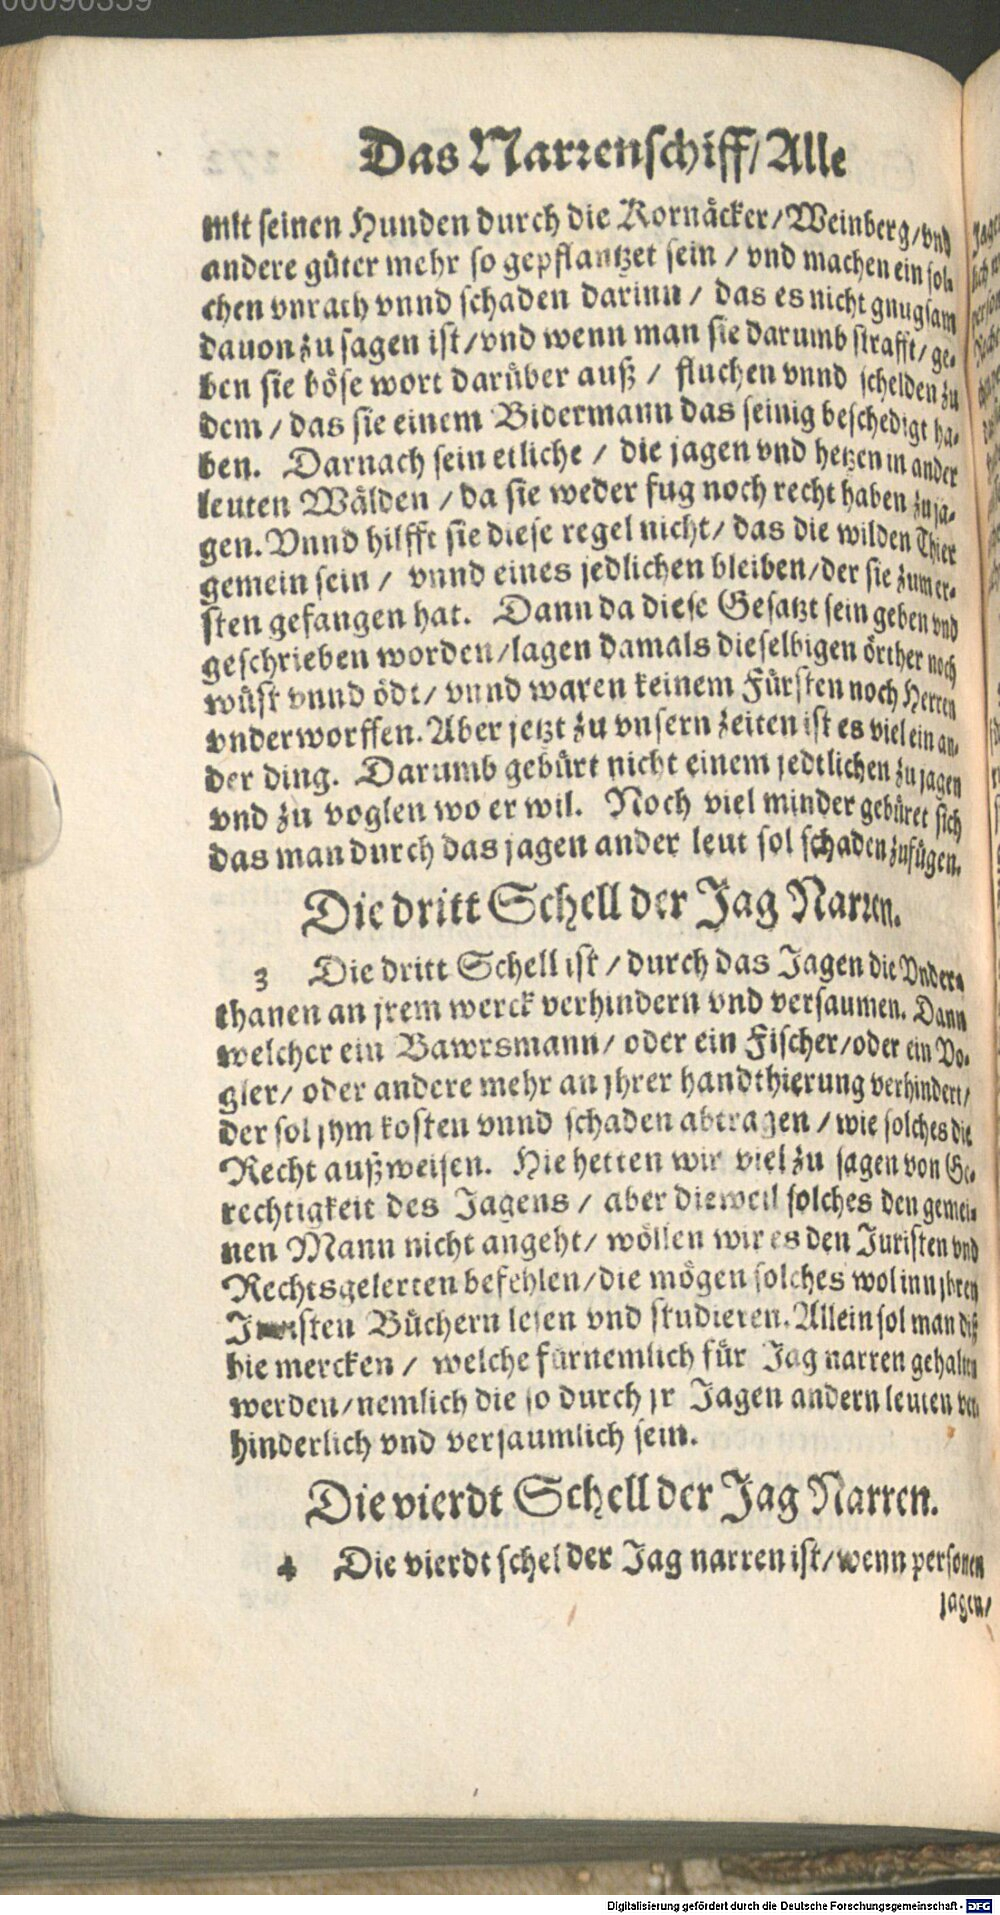 00090359
Das Narrenschiff/ Alle
mit seinen Hunden durch die Kornäcker/ Weinberg/ vnd
andere güter mehr so gepflantzet sein / vnd machen ein sol-
chen vnrath vnnd schaden darinn / das es nicht gnugsam
dauon zu sagen ist/ vnd wenn man sie darumb strafft/ ge-
ben sie böse wort darüber auß / fluchen vnnd schelden zu
dem / das sie einem Bidermann das seinig beschedigt ha-
ben. Darnach sein etliche / die jagen vnd hetzen in ander
leuten Wälden / da sie weder fug noch recht haben zu ja-
gen. Vnnd hilfft sie diese regel nicht/ das die wilden Thier
gemein sein / vnnd eines jedlichen bleiben/ der sie zum er-
sten gefangen hat. Dann da diese Gesatzt sein geben vnd
geschrieben worden/ lagen damals dieselbigen örther noch
wüst vnnd ödt/ vnnd waren keinem Fürsten noch Herren
vnderworffen. Aber jetzt zu vnsern zeiten ist es viel ein an-
der ding. Darumb gebürt nicht einem jedtlichen zu jagen
vnd zu voglen wo er wil. Noch viel minder gebüret sich
das man durch das jagen ander leut sol schaden zufügen.
Die dritt Schell der Jag Narren.
3 Die dritt Schell ist / durch das Jagen die Vnder-
thanen an jrem werck verhindern vnd versaumen. Dann
welcher ein Bawrsmann/ oder ein Fischer/ oder ein Vo-
gler/ oder andere mehr an jhrer handthierung verhindert/
der sol jhm kosten vnnd schaden abtragen / wie solches die
Recht außweisen. Hie hetten wir viel zu sagen von Ge-
rechtigkeit des Jagens / aber dieweil solches den gemei-
nen Mann nicht angeht/ wöllen wir es den Juristen vnd
Rechtsgelerten befehlen/ die mögen solches wol inn jhren
Juristen Büchern lesen vnd studieren. Allein sol man diß
hie mercken / welche fürnemlich für Jag narren gehalten
werden/ nemlich die so durch jr Jagen andern leuten ver-
hinderlich vnd versaumlich sein.
Die vierdt Schell der Jag Narren.
4 Die vierdt schel der Jag narren ist/ wenn personen
jagen/
Digitalisierung gefördert durch die Deutsche Forschungsgemeinschaft - DFG